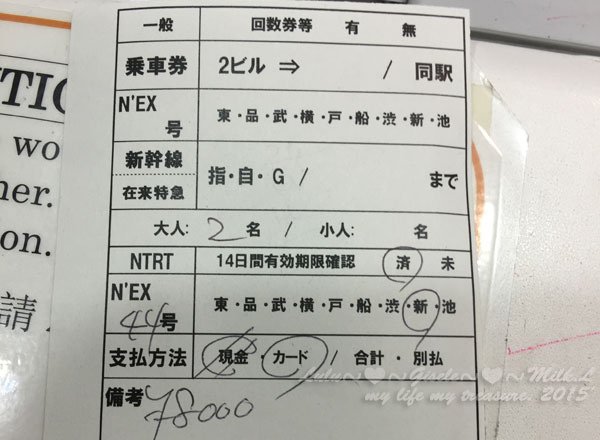 一般 回数券等 有 無
乗車券 2ビル ⇒ / 同駅
N'EX 号 東・品・武・横・戸・船・渋・新・池
新幹線 在来特急 指・自・G / まで
大人: 2 名 / 小人: 名
NTRT 14日間有効期限確認 済 未
N'EX 44号 東・品・武・横・戸・船・渋・新・池
支払方法 現金・カード / 合計・別払
備考 78000
TIO
wo
her.
on.
請
Lulu~♥~Garden~♥~Milk.L
my life my treasure. 2015